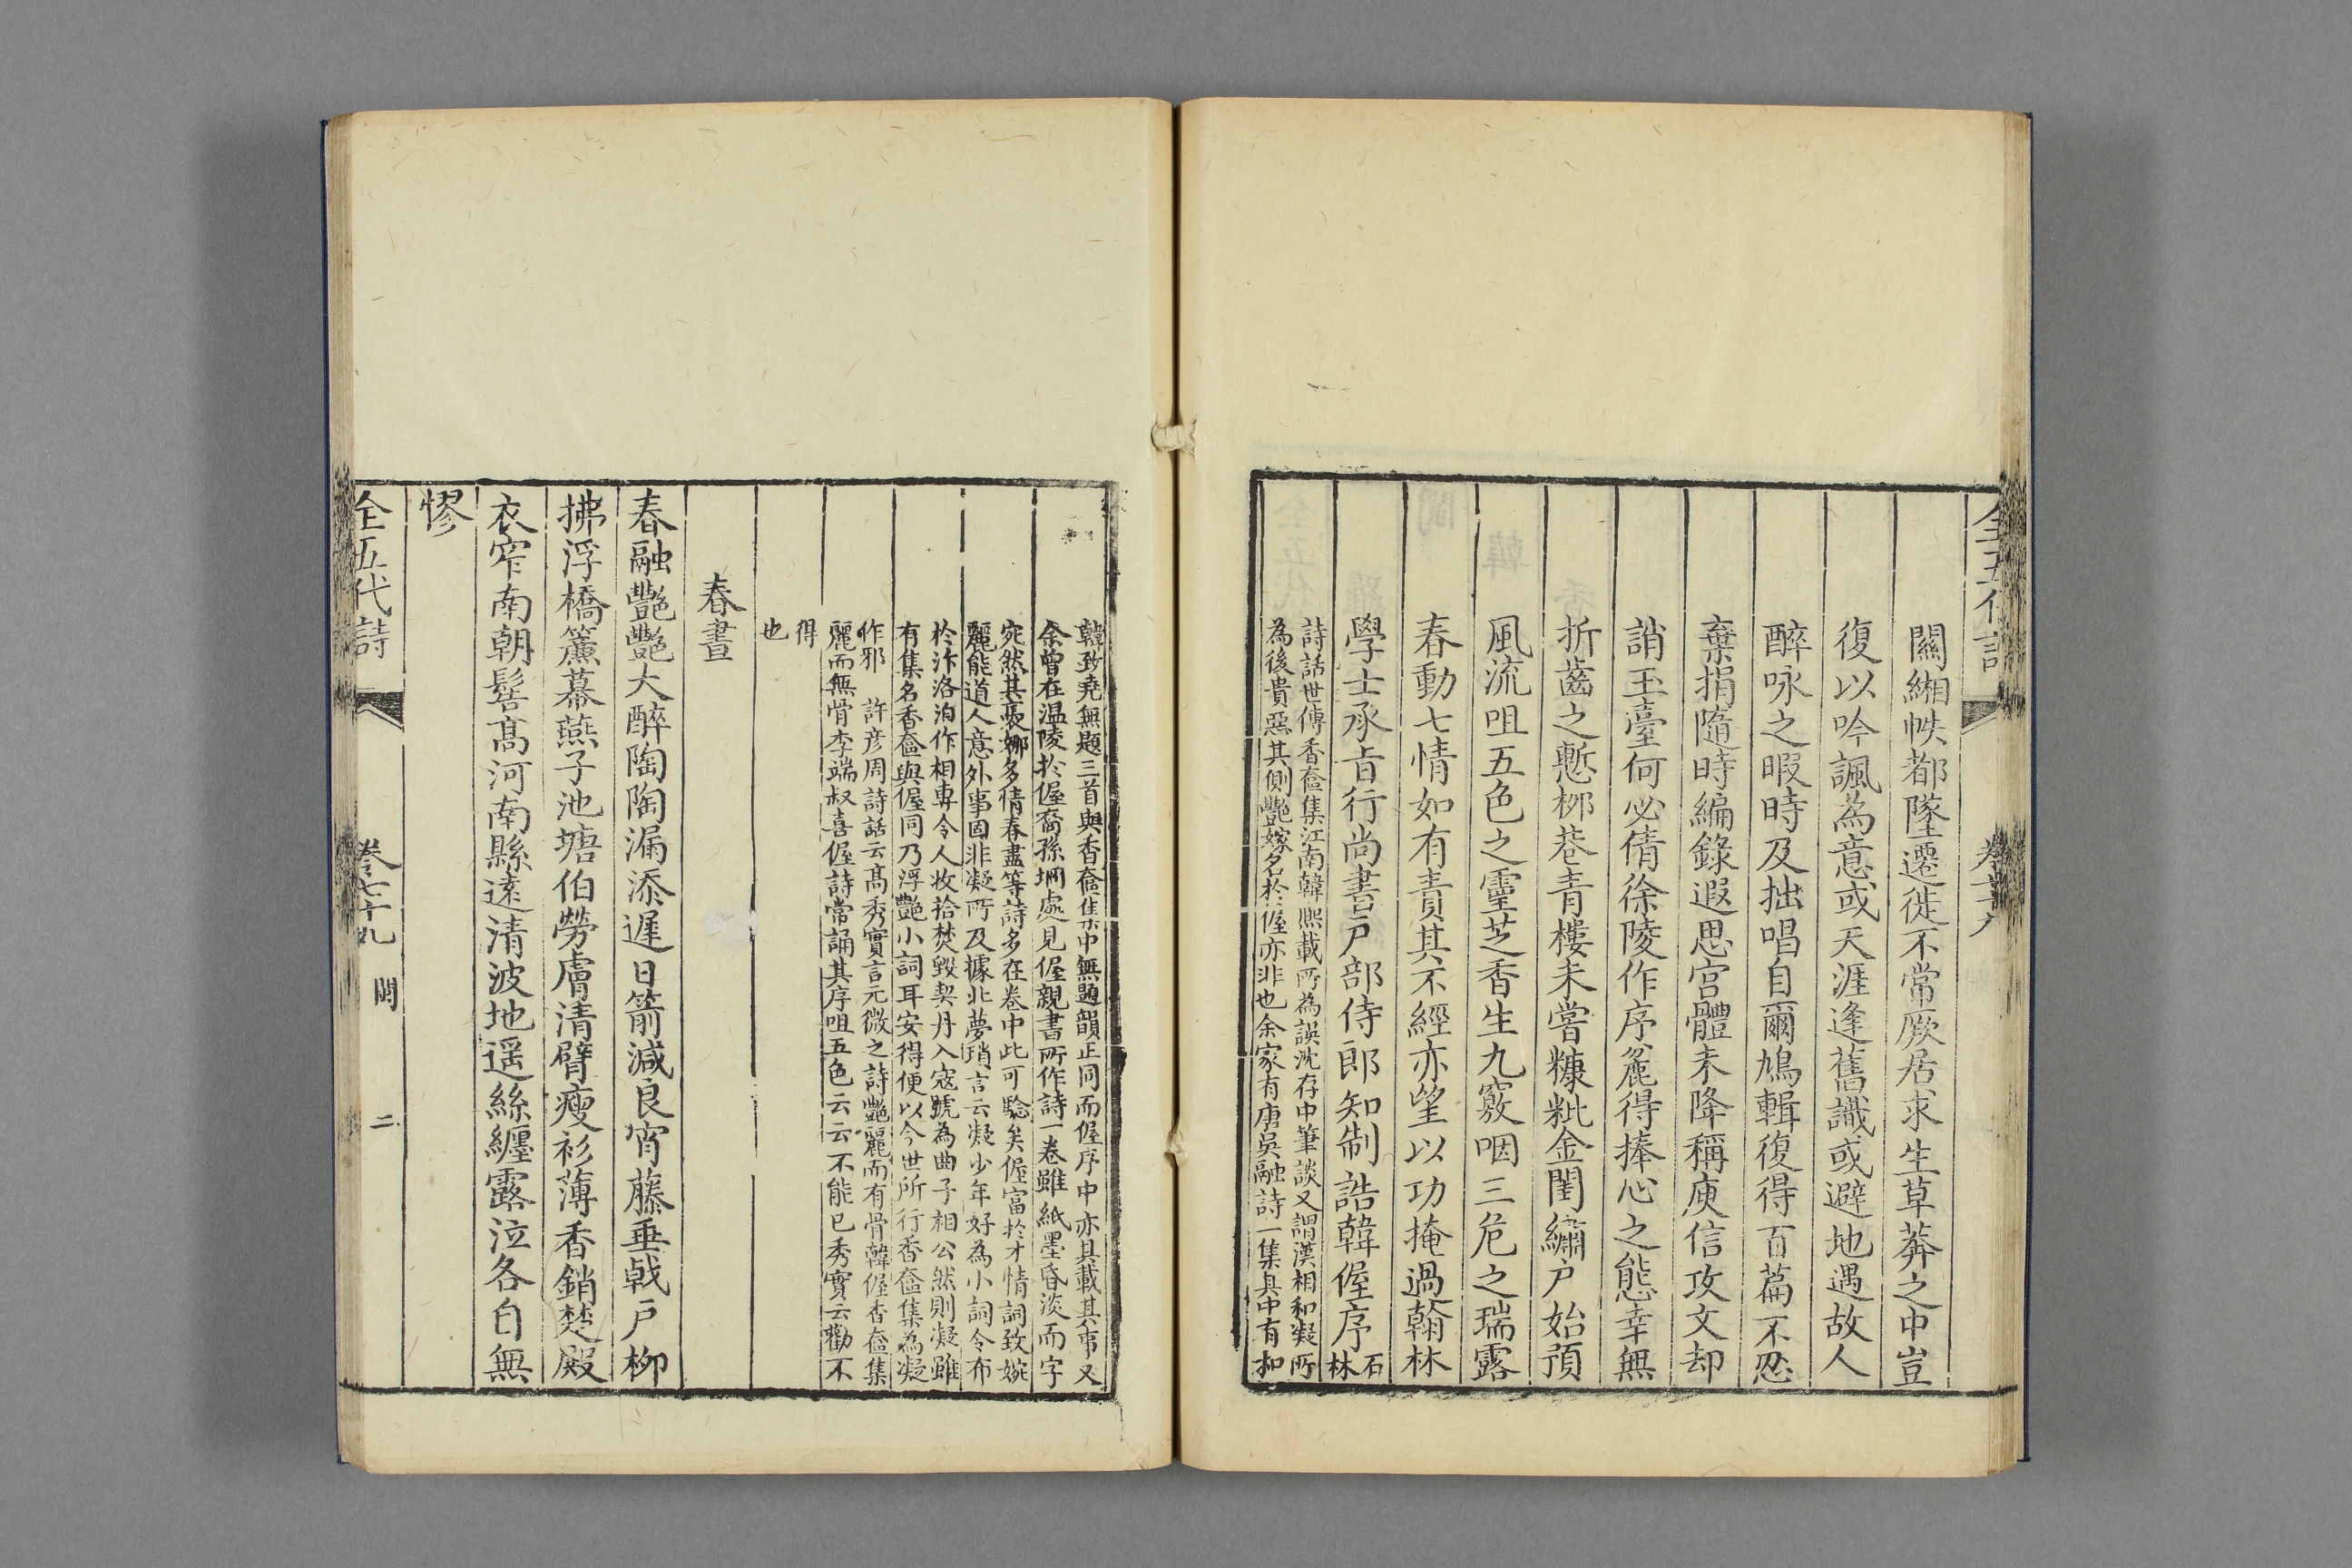 全五代詩
闕緗帙都墜遷徙不常厥居求生草莽之中豈
復以吟諷為意或天涯逢舊識或避地遇故人
醉咏之暇時及拙唱自爾鳩輯復得百篇不忍
棄捐隨時編錄遐思宫體未降稱庾信攻文却
誚玉臺何必倩徐陵作序麄得捧心之態幸無
折齒之慙柳巷青樓未嘗糠粃金閨繡户始預
風流咀五色之靈芝香生九竅咽三危之瑞露
春動七情如有責其不經亦望以功掩過翰林
學士承旨行尚書户部侍郎知制誥韓偓序 石
林
詩話世傳香奩集江南韓熙載所為誤沈存中筆談又謂漢相和凝所
為後貴惡其側艷嫁名於偓亦非也余家有唐吳融詩一集其中有和
韓致堯無題三首與香奩集中無題韻正同而偓序中亦具載其事又
余曾在温陵於偓裔孫坰處見偓親書所作詩一卷雖紙墨昏淡而字
宛然其裊娜多倩春盡等詩多在卷中此可驗矣偓富於才情詞致婉
麗能道人意外事固非凝所及據北夢瑣言云凝少年好為小詞令布
於汴洛洎作相專令人收拾焚毀契丹入寇號為曲子相公然則凝雖
有集名香奩與偓同乃浮艷小詞耳安得便以今世所行香奩集為凝
作邪　許彦周詩話云髙秀實言元微之詩艷麗而有骨韓偓香奩集
麗而無骨李端叔喜偓詩常誦其序咀五色云云不能已秀實云勸不
得
也
春晝
春融艷艷大醉陶陶漏添遲日箭減良宵藤垂戟户柳
拂浮橋簾幕燕子池塘伯勞膚清臂瘦衫薄香銷楚殿
衣窄南朝髻髙河南縣遠清波地遥絲纒露泣各自無
憀
全五代詩
卷七十九 閩
二